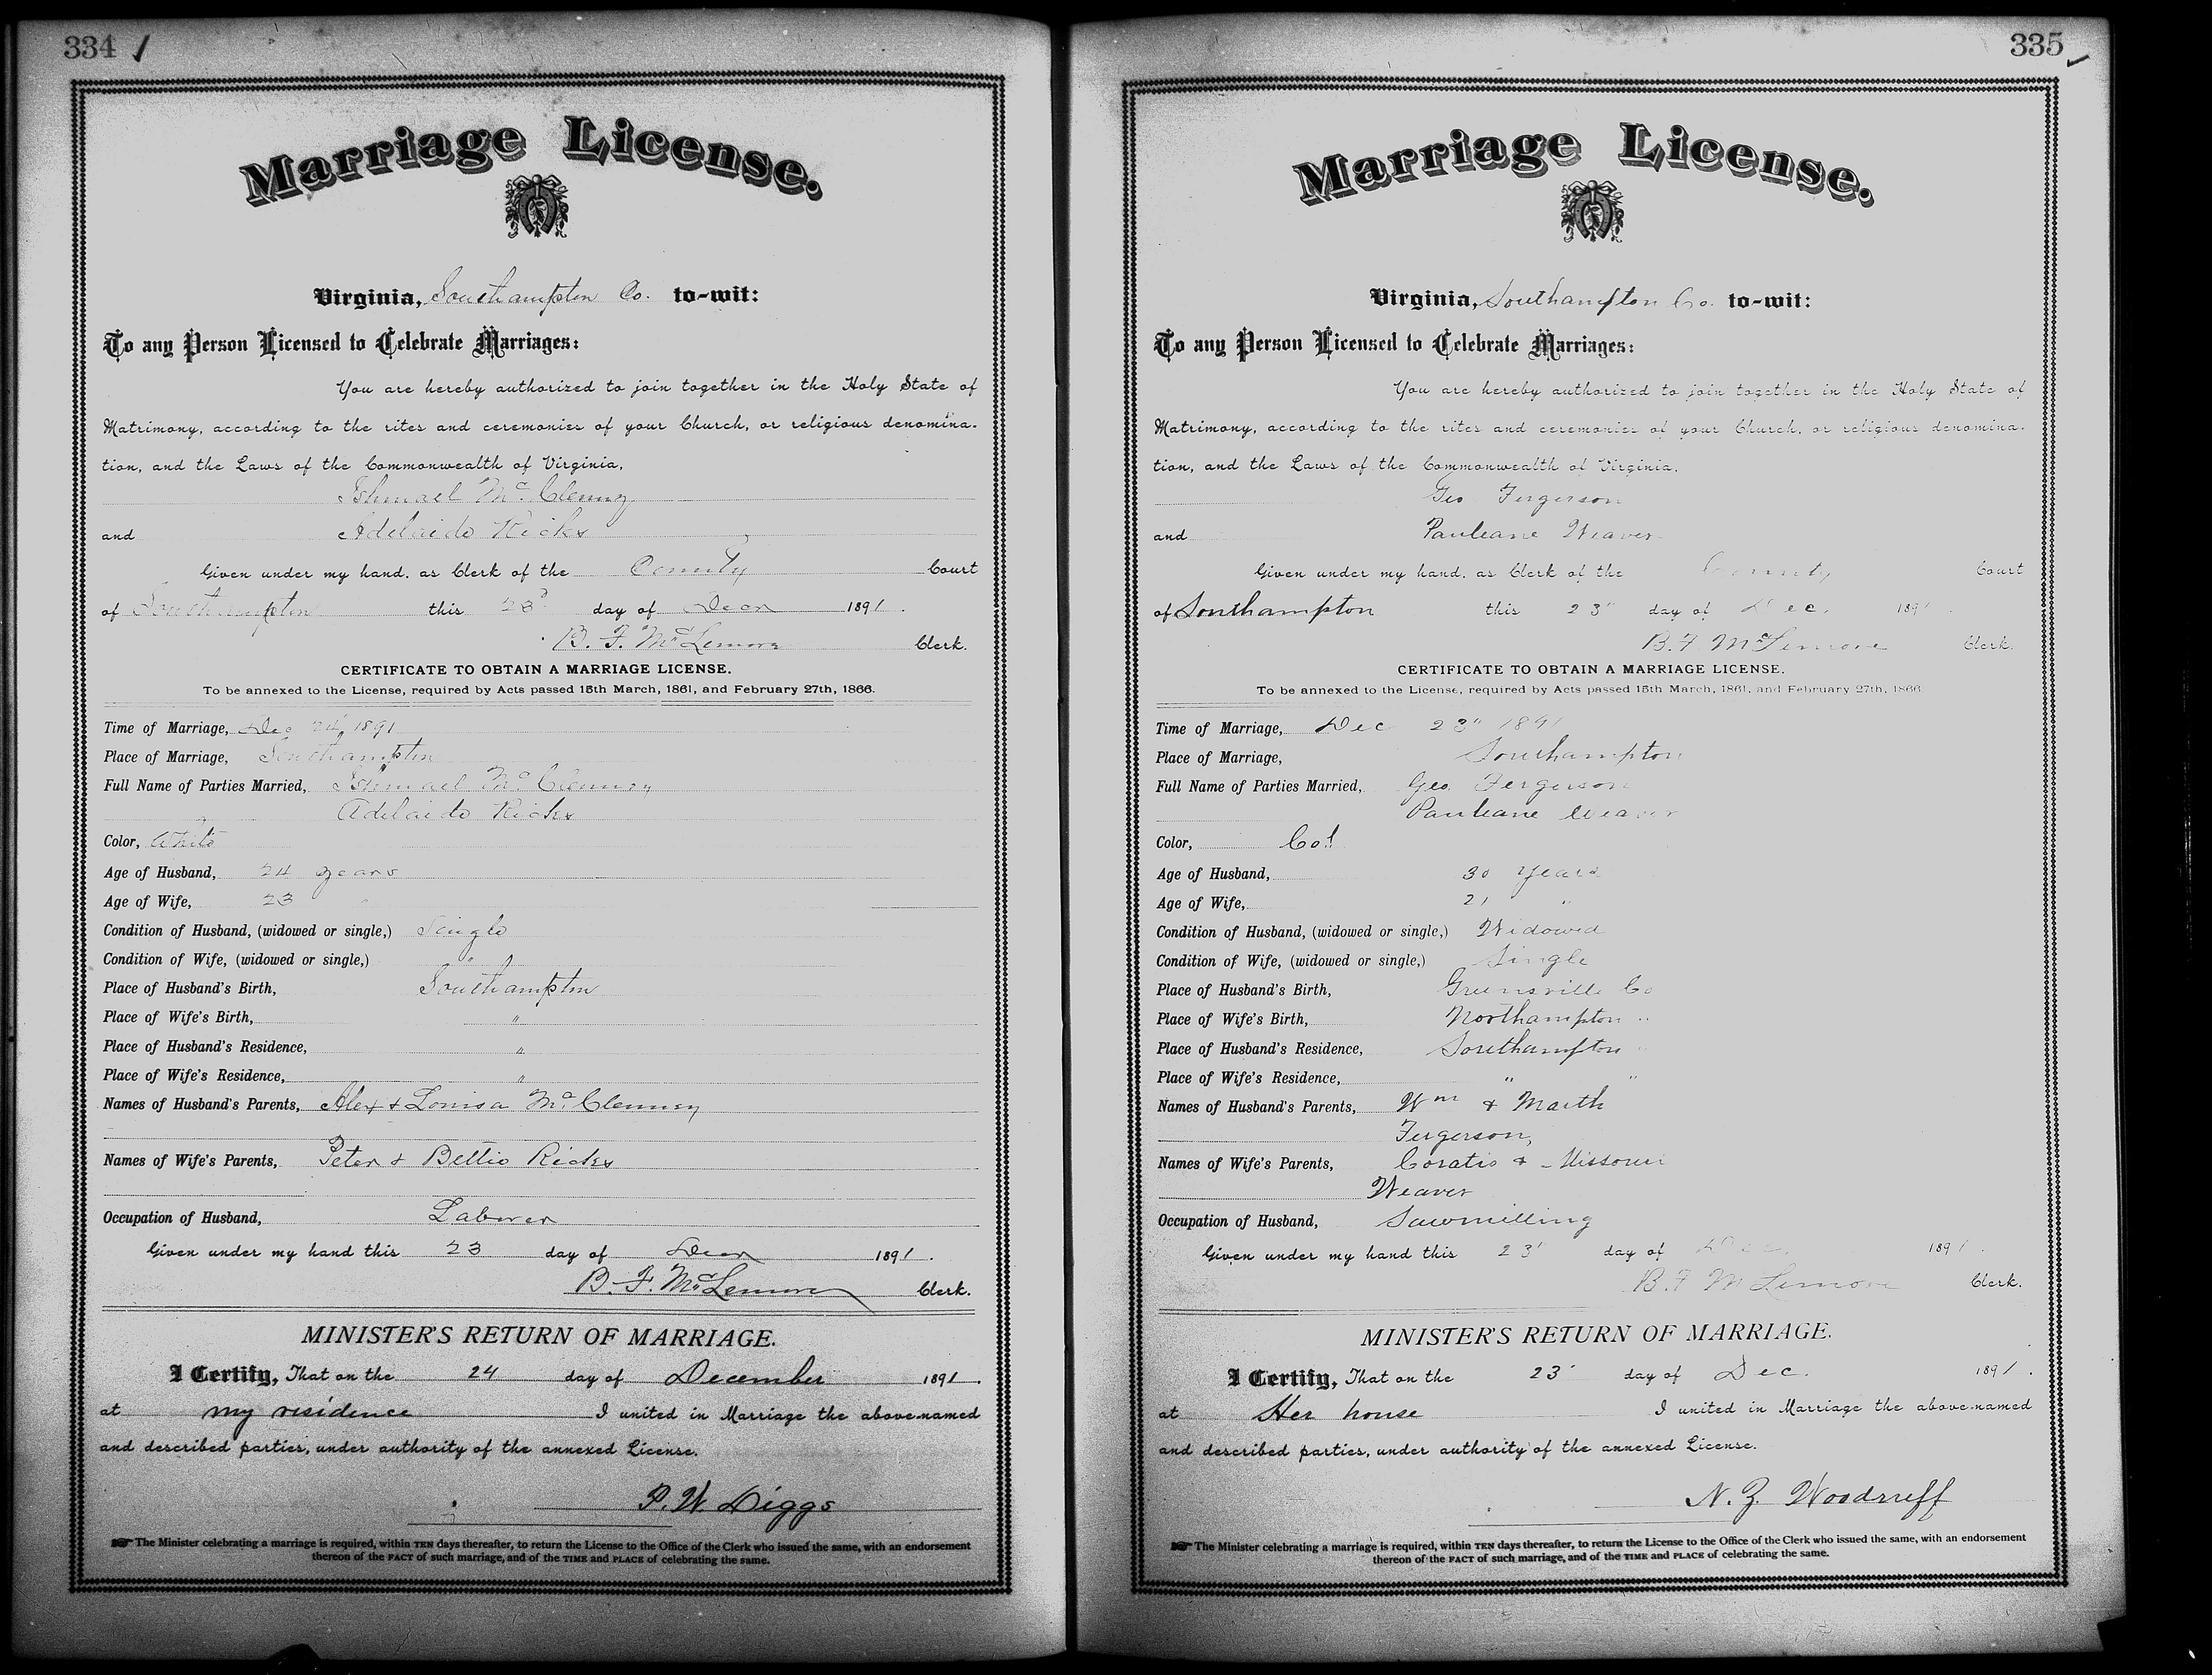 334
Marriage License.
Virginia, Southampton Co. to-wit:
To any Person Licensed to Celebrate Marriages:
You are hereby authorized to join together in the Holy State of
Matrimony, according to the rites and ceremonies of your Church, or religious denomina-
tion, and the Laws of the Commonwealth of Virginia,
Ishmael McClenny
and Adelaide Ricks
Given under my hand, as Clerk of the County Court
of Southampton this 23d day of Decr 1891.
B. F. McLemore Clerk.
CERTIFICATE TO OBTAIN A MARRIAGE LICENSE.
To be annexed to the License, required by Acts passed 15th March, 1861, and February 27th, 1866.
Time of Marriage, Dec 24, 1891
Place of Marriage, Southampton
Full Name of Parties Married, Ishmael McClenney
Adelaide Ricks
Color, White
Age of Husband, 24 years
Age of Wife, 23 "
Condition of Husband, (widowed or single,) Single
Condition of Wife, (widowed or single,) "
Place of Husband's Birth, Southampton
Place of Wife's Birth, "
Place of Husband's Residence, "
Place of Wife's Residence, "
Names of Husband's Parents, Alex + Louisa McClenney
Names of Wife's Parents, Peter + Bettie Ricks
Occupation of Husband, Laborer
Given under my hand this 23 day of Decr 1891.
B. F. McLemore Clerk.
MINISTER'S RETURN OF MARRIAGE.
I Certify, That on the 24 day of December 1891.
at my residence I united in Marriage the above-named
and described parties, under authority of the annexed License.
P. W. Diggs
The Minister celebrating a marriage is required, within TEN days thereafter, to return the License to the Office of the Clerk who issued the same, with an endorsement
thereon of the FACT of such marriage, and of the TIME and PLACE of celebrating the same.
335
Marriage License.
Virginia, Southampton Co. to-wit:
To any Person Licensed to Celebrate Marriages:
You are hereby authorized to join together in the Holy State of
Matrimony, according to the rites and ceremonies of your Church, or religious denomina-
tion, and the Laws of the Commonwealth of Virginia,
Geo Fergerson
and Pauleane Weaver
Given under my hand, as Clerk of the County Court
of Southampton this 23" day of Dec. 1891
B. F. McLemore Clerk.
CERTIFICATE TO OBTAIN A MARRIAGE LICENSE.
To be annexed to the License, required by Acts passed 15th March, 1861, and February 27th, 1866
Time of Marriage, Dec 23" 1891
Place of Marriage, Southampton
Full Name of Parties Married, Geo. Fergerson
Pauleane Weaver
Color, Col
Age of Husband, 30 Years
Age of Wife, 21 "
Condition of Husband, (widowed or single,) Widowed
Condition of Wife, (widowed or single,) Single
Place of Husband's Birth, Greensville Co
Place of Wife's Birth, Northampton "
Place of Husband's Residence, Southampton "
Place of Wife's Residence, " "
Names of Husband's Parents, Wm + Marth
Fergerson,
Names of Wife's Parents, Coratio + Missouri
Weaver
Occupation of Husband, Sawmilling
Given under my hand this 23" day of Dec. 1891.
B. F. McLemore Clerk.
MINISTER'S RETURN OF MARRIAGE.
I Certify, That on the 23 day of Dec. 1891.
at Her house I united in Marriage the above-named
and described parties, under authority of the annexed License.
N. Z. Woodruff
The Minister celebrating a marriage is required, within TEN days thereafter, to return the License to the Office of the Clerk who issued the same, with an endorsement
thereon of the FACT of such marriage, and of the TIME and PLACE of celebrating the same.